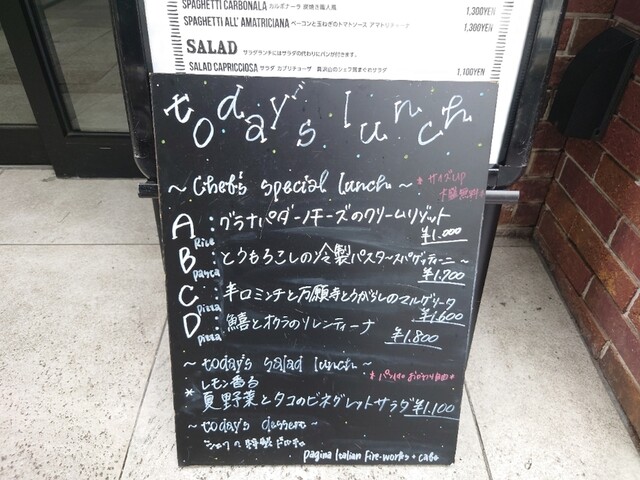 SPAGHETTI CARBONALA カルボナーラ 炭焼き職人風 1,300YEN
SPAGHETTI ALL' AMATRICIANA ベーコンと玉ねぎのトマトソース アマトリチャーナ 1,300YEN
SALAD サラダランチにはサラダの代わりにパンが付きます。
SALAD CAPRICCIOSA サラダ カプリチョーザ シェフ気まぐれサラダ 1,100YEN
today's lunch
~ Chef's special lunch ~ * サイズUP
大盛無料 *
A : グラナパダーノチーズのクリームリゾット
Rice ¥1.000
B : とうもろこしの冷製パスタ~スパゲッティーニ~
pasta ¥1.700
C : 辛口ミンチと万願寺とうがらしのマルゲリータ
pizza ¥1.600
D : 鱚とオクラのソレンティーナ
pizza ¥1.800
~ today's salad lunch ~
* パンのおかわり自由 *
レモン香る
* 夏野菜とタコのビネグレットサラダ ¥1.100
~ today's dessert ~
シェフ特製ドルチェ
pagina Italian fire-works + cafe